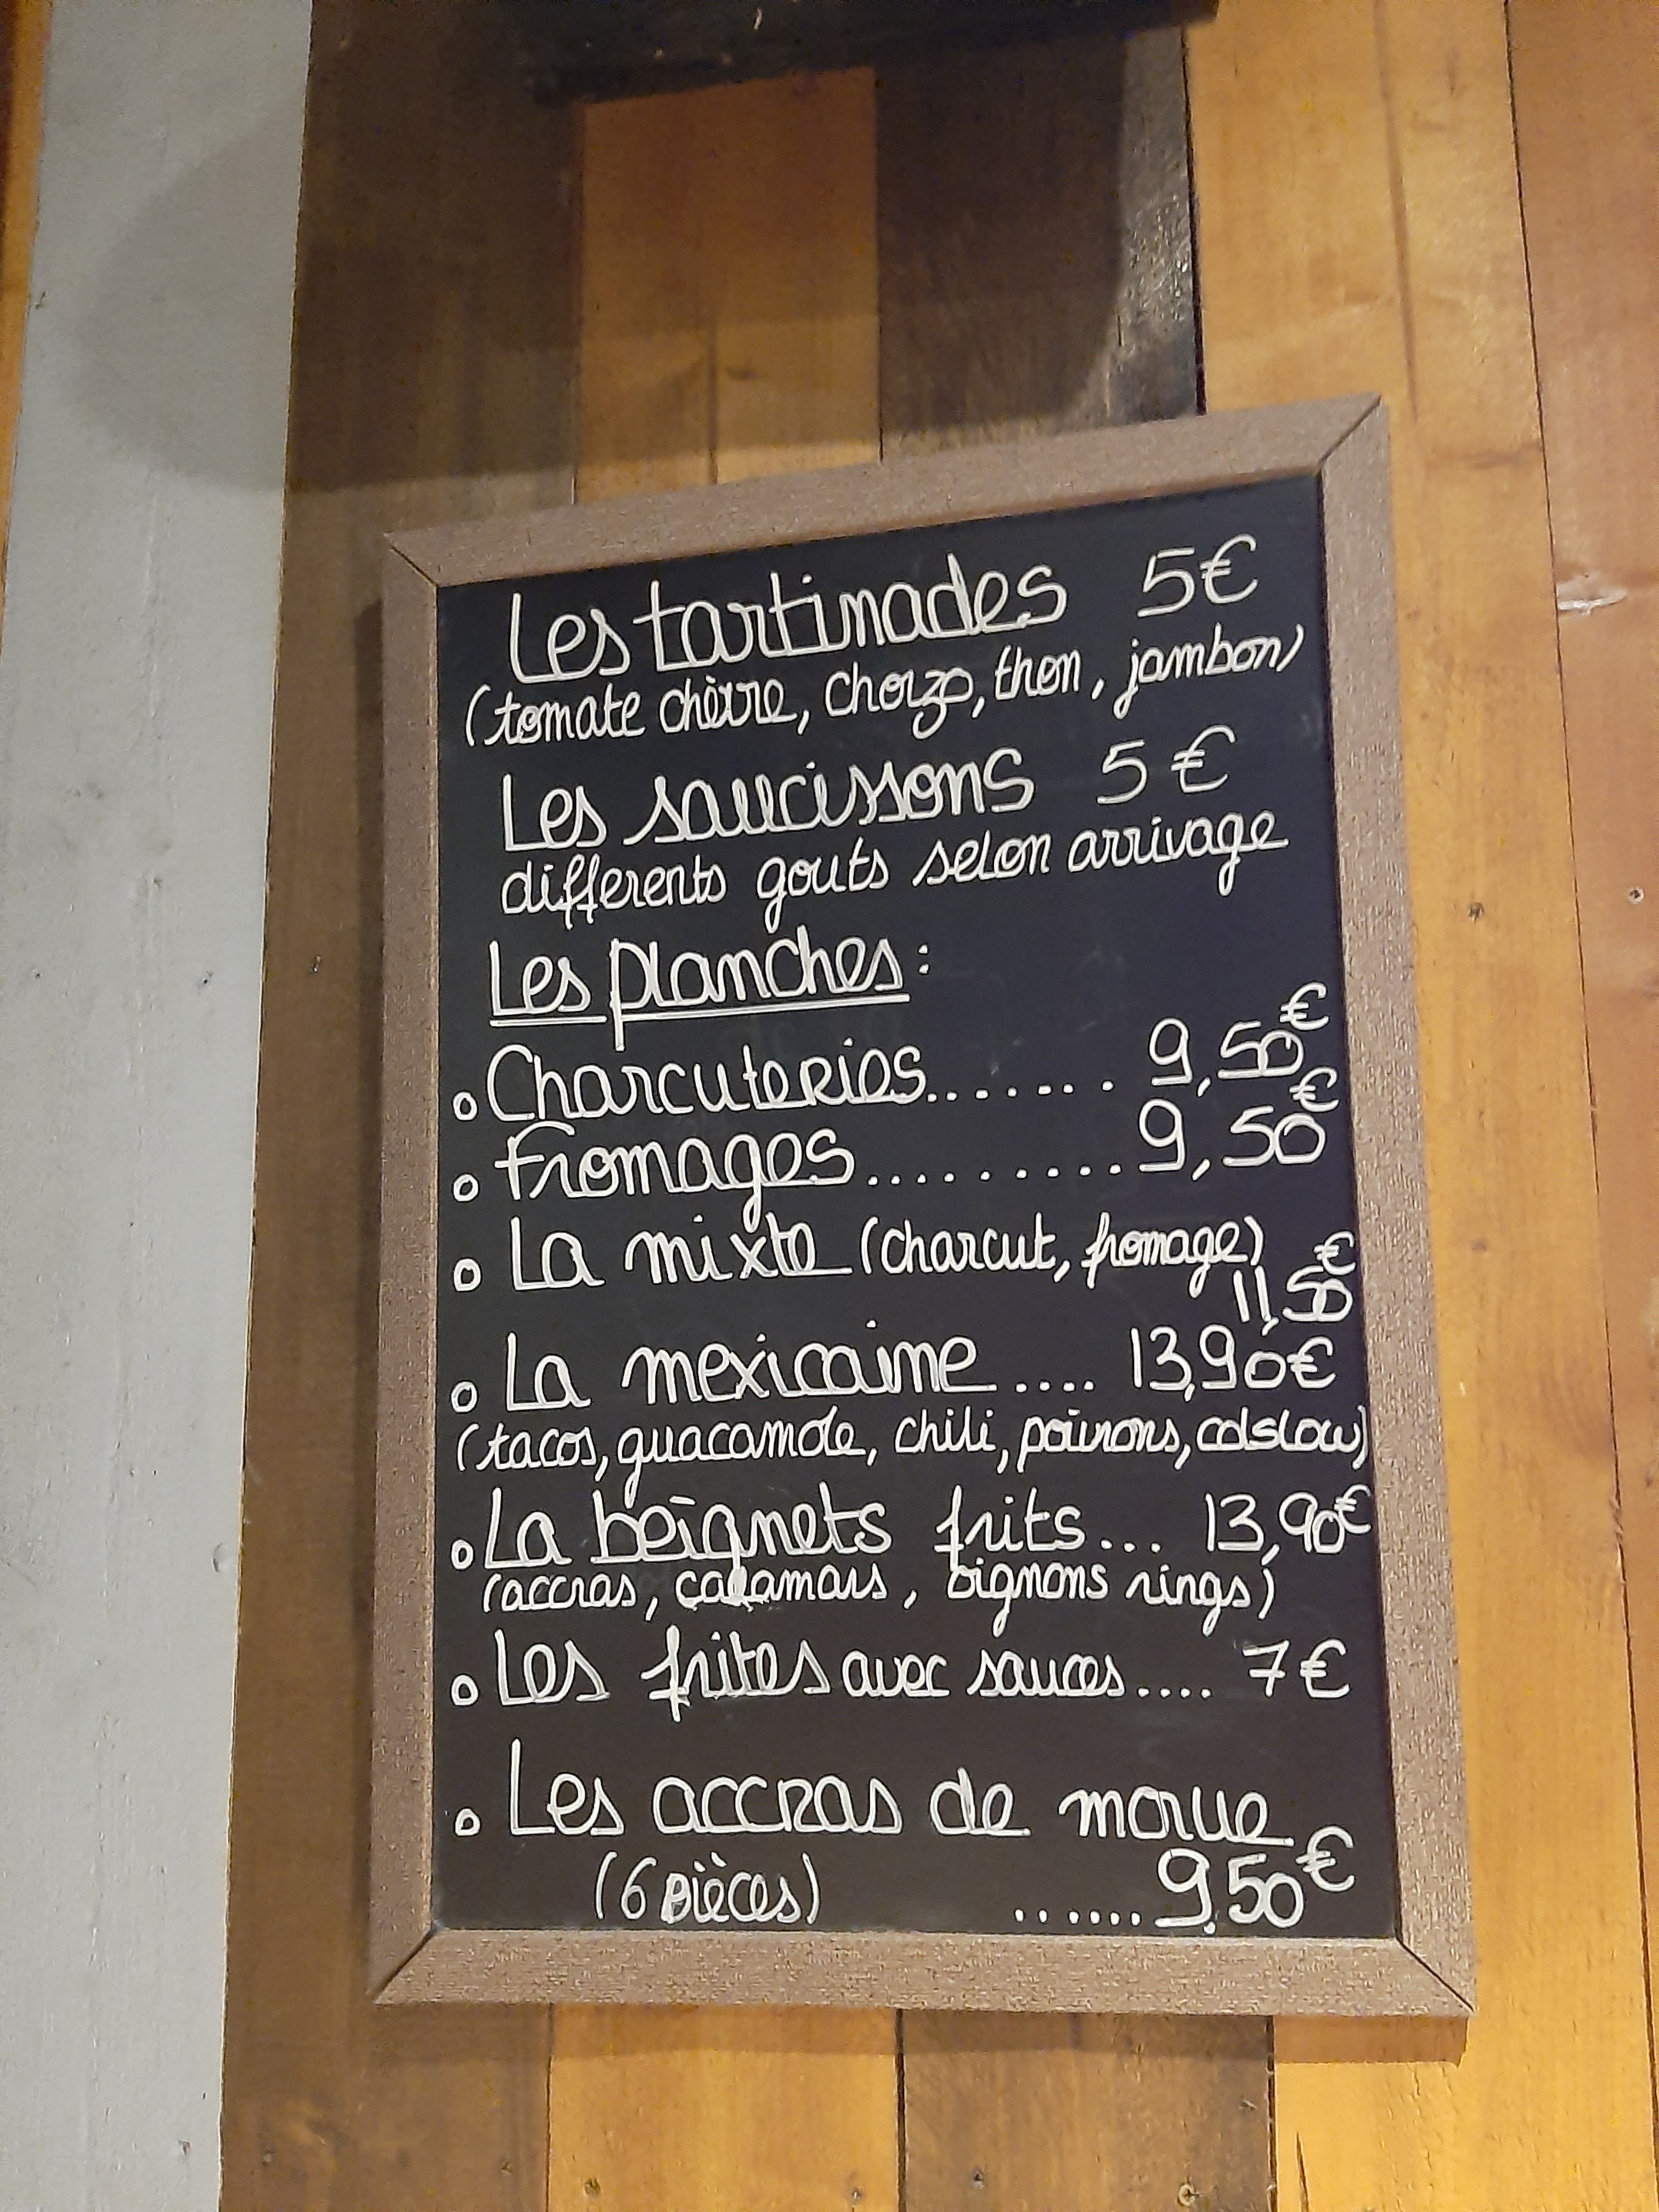 Les tartinades 5€
(tomate chèvre, chorizo, thon, jambon)
Les saucissons 5€
differents gouts selon arrivage
Les planches:
o Charcuteries....... 9,50€
o Fromages.......... 9,50€
o La mixte (charcut, fromage)
11,50€
o La mexicaine.... 13,90€
(tacos, guacamole, chili, poivrons, colslow)
o La beignets frits... 13,90€
(accras, calamars, oignons rings)
o Les frites avec sauces.... 7€
o Les accras de morue
(6 pièces) ...... 9,50€